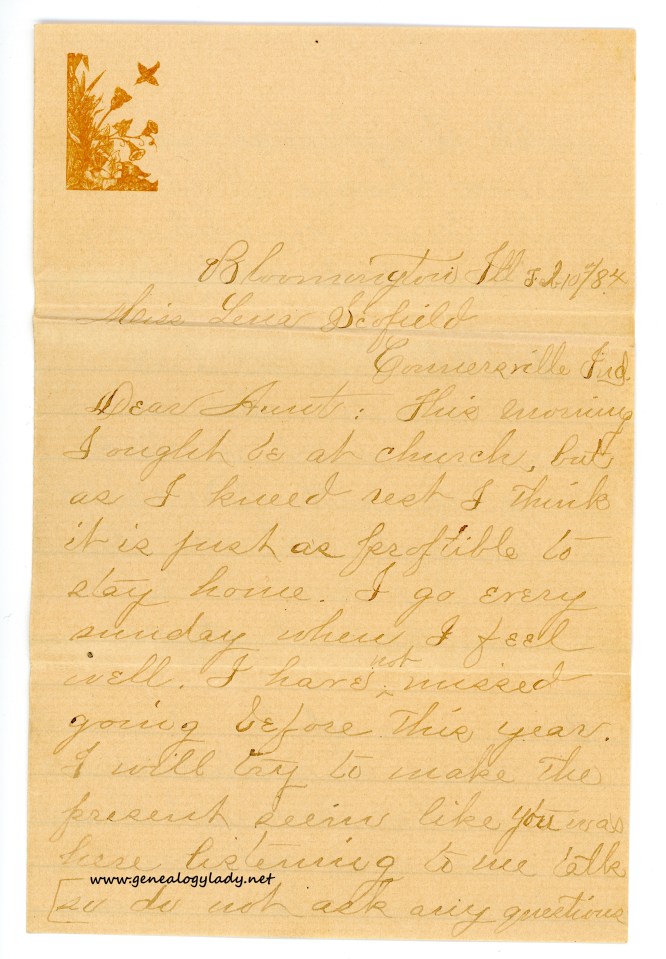 Bloomington Ill F. 10th/84
Miss Lena Scofield
Connersville Ind.
Dear Aunt: This morning
I ought be at church, but
as I kneed rest I think
it is just as proftible to
stay home. I go every
sunday when I feel
well. I have not missed
going before this year.
I will try to make the
present seem like you was
here listening to me talk
www.genealogylady.net
so do not ask any questions